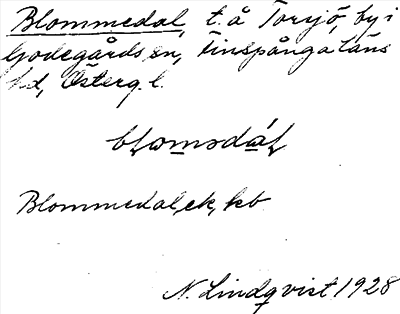 Blommedal, t. å Torsjö, by i
Godegårds sn, Finspånga läns
hd, Österg. l.
bɫomsdáɫ
Blommedal, ek, kb
N. Lindqvist 1928